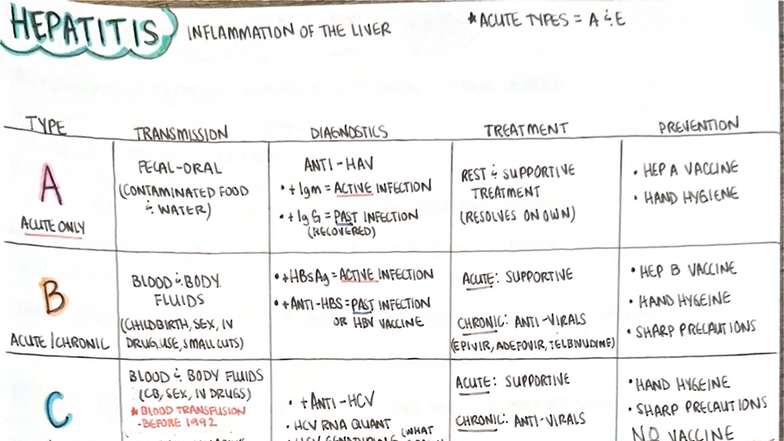 HEPATITIS INFLAMMATION OF THE LIVER *ACUTE TYPES = A & E
TYPE TRANSMISSION DIAGNOSTICS TREATMENT PREVENTION
A
ACUTE ONLY
FECAL-ORAL
(CONTAMINATED FOOD
& WATER)
ANTI-HAV
• + Igm = ACTIVE INFECTION
• + IgG = PAST INFECTION
(RECOVERED)
REST & SUPPORTIVE
TREATMENT
(RESOLVES ON OWN)
• HEP A VACCINE
• HAND HYGIENE
B
ACUTE/CHRONIC
BLOOD & BODY
FLUIDS
(CHILDBIRTH, SEX, IV
DRUG USE, SMALL CUTS)
• +HBsAg = ACTIVE INFECTION
• +ANTI-HBS = PAST INFECTION
OR HBV VACCINE
ACUTE: SUPPORTIVE
CHRONIC: ANTI-VIRALS
(EPIVIR, ADEFOVIR, TELBIVUDINE)
• HEP B VACCINE
• HAND HYGEINE
• SHARP PRECAUTIONS
C
BLOOD & BODY FLUIDS
(CB, SEX, IV DRUGS)
* BLOOD TRANSFUSION
- BEFORE 1992
• +ANTI-HCV
• HCV RNA QUANT
(WHAT
ACUTE: SUPPORTIVE
CHRONIC: ANTI-VIRALS
• HAND HYGEINE
• SHARP PRECAUTIONS
NO VACCINE